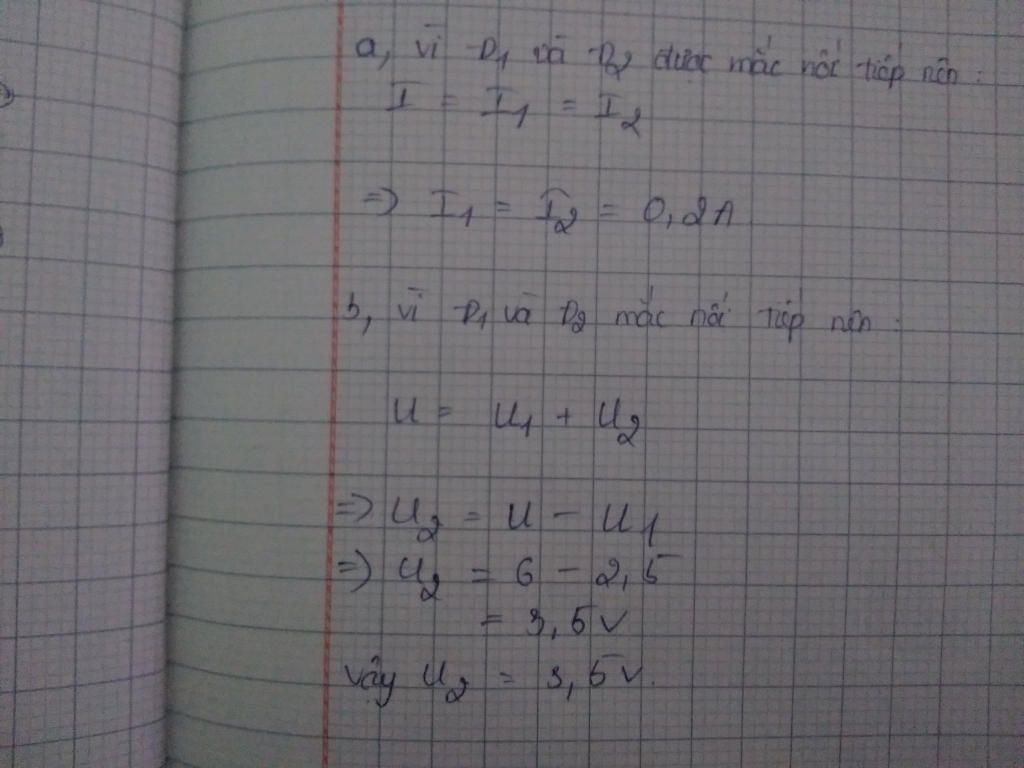 a, vì Đ1 và Đ2 được mắc nối tiếp nên :
I = I1 = I2
=> I1 = I2 = 0,2A
b, vì Đ1 và Đ2 mắc nối tiếp nên :
U = U1 + U2
=> U2 = U - U1
=> U2 = 6 - 2,5
= 3,5 V
vậy U2 = 3,5 V.